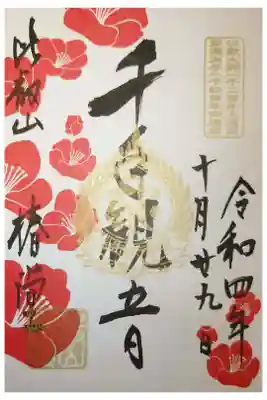 令和四年
十月廿九日
千手観音
比叡山 椿堂